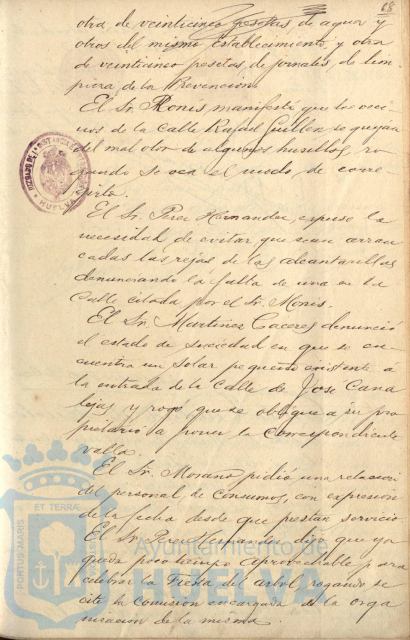 68
otra de veinticinco pesetas, de agua y
otros del mismo establecimiento y otra
de veinticinco pesetas, de jornales, de lim
pieza de la Prevencion.
El Sr. Monis manifestó que los veci
nos de la Calle Rafael Guillen se quejan
del mal olor de algunos husillos, ro
gando se vea el modo de corre
girlo.
El Sr. Perez Hernandez, expuso la
necesidad de evitar que sean arran
cadas las rejas de las alcantarillas
denunciando la falta de una en la
Calle citada por el Sr. Monis.
El Sr. Martinez Caceres denunció
el estado de suciedad en que se en
cuentra un solar pequeño existente á
la entrada de la Calle de José Cana
lejas y rogó que se obligue a su pro
pietario a poner la correspondiente
valla.
El Sr. Morano pidió una relacion
del personal de Consumos, con expresion
de la fecha desde que prestan servicio
El Sr. Perez Hernandez dijo que ya
queda poco tiempo aprovechable para
celebrar la Fiesta del arbol, rogando se
cite la comision encargada de la orga
nizacion de la misma.
HUELVA
PORTUS MARIS ET TERRAE
Ayuntamiento de
HUELVA